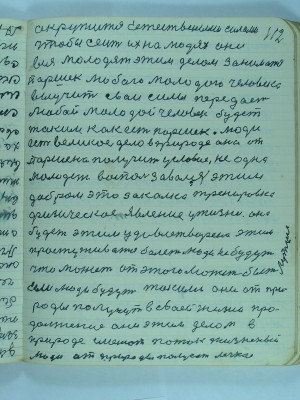 112
окружится естественными силами
чтобы сеит их на людях они
вся молодят этим делом занимат
паршек любого молодого человека
выучит свои силы передает
любой молодой человек будет
таким как ест паршек. люди
ест великое дело в природе они от
паршека получит условие, не одна
молодеж воспользовался этим
добром это закалка тренировка
физическое явление у жизне. она
будет этим удовлетворена этим
простуживат болет люди не будут
что может от этого может быт лутший
если люди будут такими они от при-
роды получут в своей жизни про-
должение они этим делом в
природе сменют поток жизненый
люди от природы получут легкое